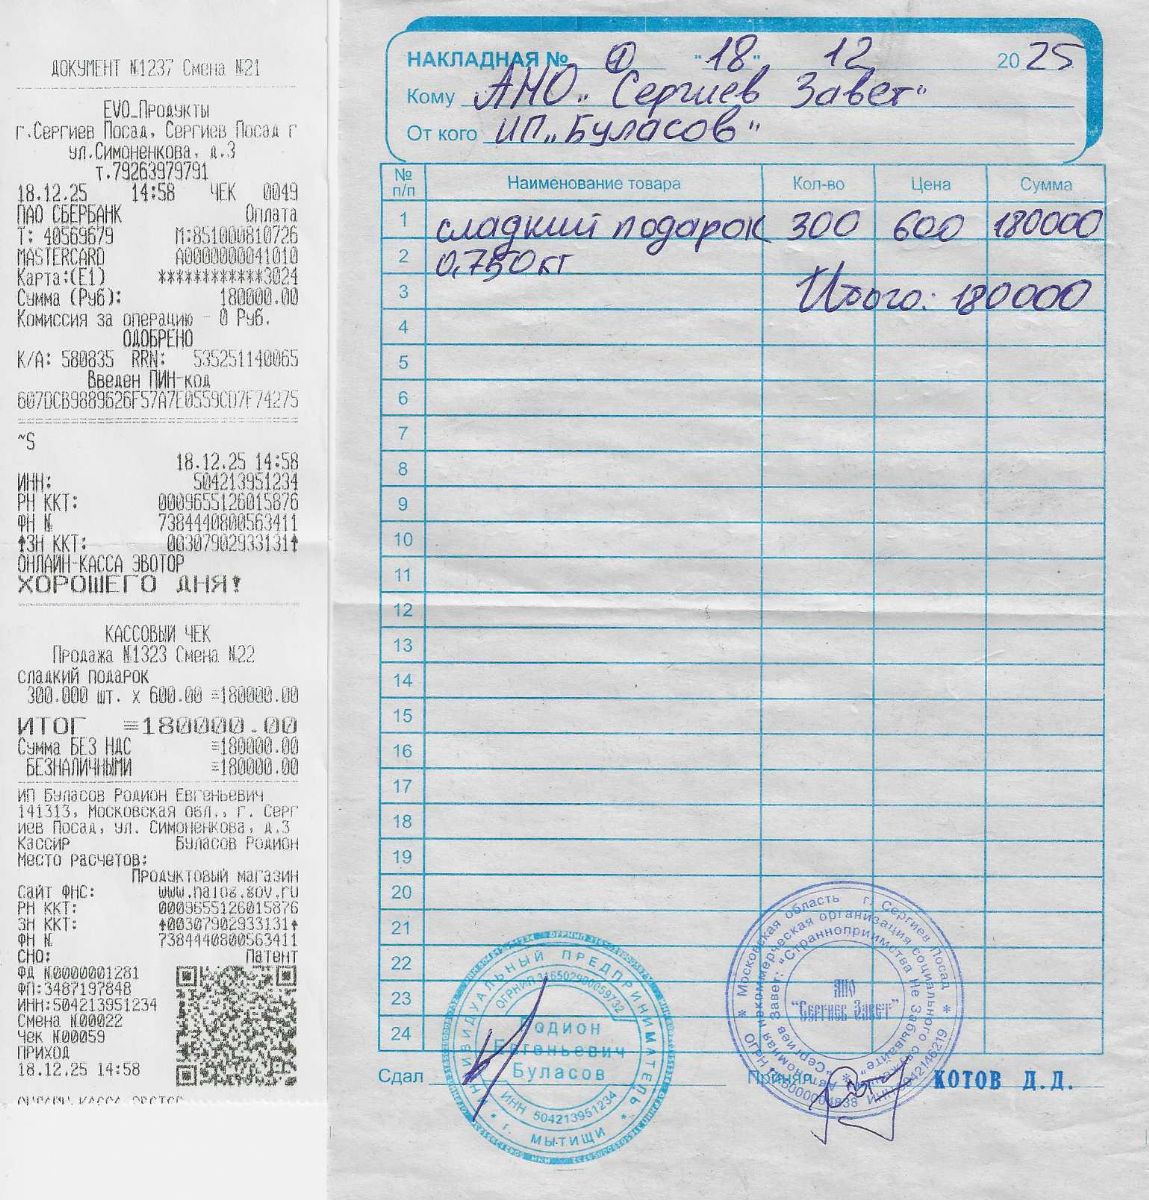 ДОКУМЕНТ №1237 Смена №21
EVO_Продукты
г.Сергиев Посад, Сергиев Посад г
ул.Симоненкова, д.3
т.79263979791
18.12.25 14:58 ЧЕК 0049
ПАО СБЕРБАНК Оплата
Т: 40569679 М:851000810726
MASTERCARD A0000000041010
Карта:(E1) ************3024
Сумма (Руб): 180000.00
Комиссия за операцию - 0 Руб.
ОДОБРЕНО
К/А: 580835 RRN: 535251140065
Введен ПИН-код
607DCB9889626F57A7E0559CD7F74275
~S
18.12.25 14:58
ИНН: 504213951234
РН ККТ: 0009655126015876
ФН № 7384440800563411
↑ЗН ККТ: 00307902933131↑
ОНЛАЙН-КАССА ЭВОТОР
ХОРОШЕГО ДНЯ!
КАССОВЫЙ ЧЕК
Продажа №1323 Смена №22
СЛАДКИЙ ПОДАРОК
300.000 шт. x 600.00 =180000.00
ИТОГ =180000.00
Сумма БЕЗ НДС =180000.00
БЕЗНАЛИЧНЫМИ =180000.00
ИП Буласов Родион Евгеньевич
141313, Московская обл., г. Серг
иев Посад, ул. Симоненкова, д.3
Кассир Буласов Родион
Место расчетов:
Продуктовый магазин
Сайт ФНС: www.nalog.gov.ru
РН ККТ: 0009655126015876
ЗН ККТ: ↑00307902933131↑
ФН № 7384440800563411
СНО: Патент
ФД №0000001281
ФП:3487197848
ИНН:504213951234
Смена №00022
Чек №00059
ПРИХОД
18.12.25 14:58
НАКЛАДНАЯ № 1 "18" 12 2025
Кому АНО „Сергиев Завет"
От кого ИП „Буласов"
№ п/п Наименование товара Кол-во Цена Сумма
1 сладкий подарок 300 600 180000
2 0,750кг
3 Итого: 180000
4
5
6
7
8
9
10
11
12
13
14
15
16
17
18
19
20
21
22
23
24
Сдал Принял КОТОВ Д.Д.
ИНДИВИДУАЛЬНЫЙ ПРЕДПРИНИМАТЕЛЬ
Родион
Евгеньевич
Буласов
ИНН 504213951234
г. МЫТИЩИ
Московская область г. Сергиев Посад
АНО
"Сергиев Завет"